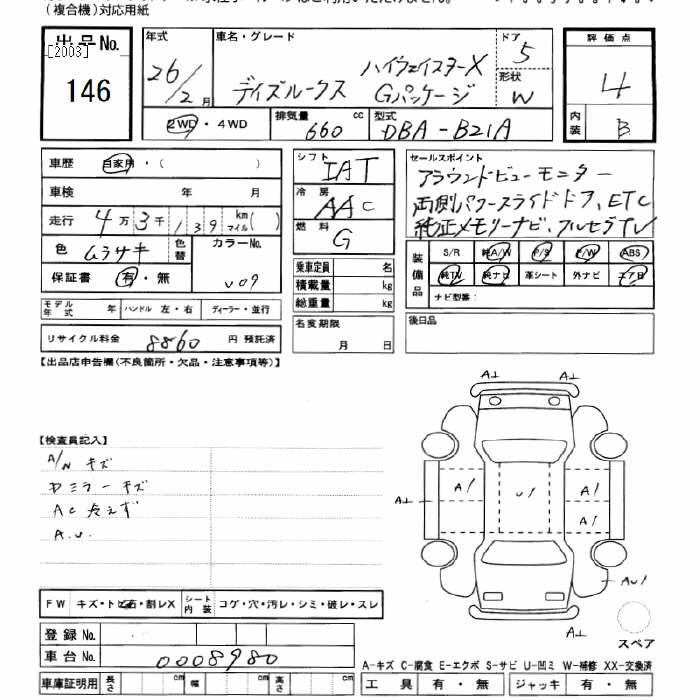 (複合機)対応用紙
出品No.
[2003]
146
年式 26/2月
車名・グレード デイズルークス ハイウェイスターX Gパッケージ
ドア 5
形状 W
評価点 4
内装 B
2WD・4WD
排気量 660 cc
型式 DBA-B21A
車歴 自家用・( )
車検 年 月
走行 4万3千139 km マイル( )
色 ムラサキ 色替 カラーNo. V09
保証書 有・無
モデル年式 年 ハンドル 左・右 ディーラー・並行
リサイクル料金 8860 円 預託済
シフト IAT
冷房 AAC
燃料 G
乗車定員 名
積載量 kg
総重量 kg
名変期限 月 日
セールスポイント
アラウンドビューモニター
両側パワースライドドア、ETC
純正メモリーナビ、フルセグTV
装備品 S/R 純A/W P/S P/W ABS
純TV 純ナビ 革シート 外ナビ エアB
ナビ型番:
後日品
【出品店申告欄(不良箇所・欠品・注意事項等)】
【検査員記入】
A/N キズ
Dミラーキズ
A.U.
FW キズ・トビ石・割レX シート内装 コゲ・穴・汚レ・シミ・破レ・スレ
登録No.
車台No. 0008980
車庫証明用 長さ cm 幅 cm 高さ cm
A⊥ A⊥
A⊥ A1 U1 A1
A1
AU1
A⊥
スペア
A-キズ C-腐食 E-エクボ S-サビ U-凹ミ W-補修 XX-交換済
工具 有・無 ジャッキ 有・無